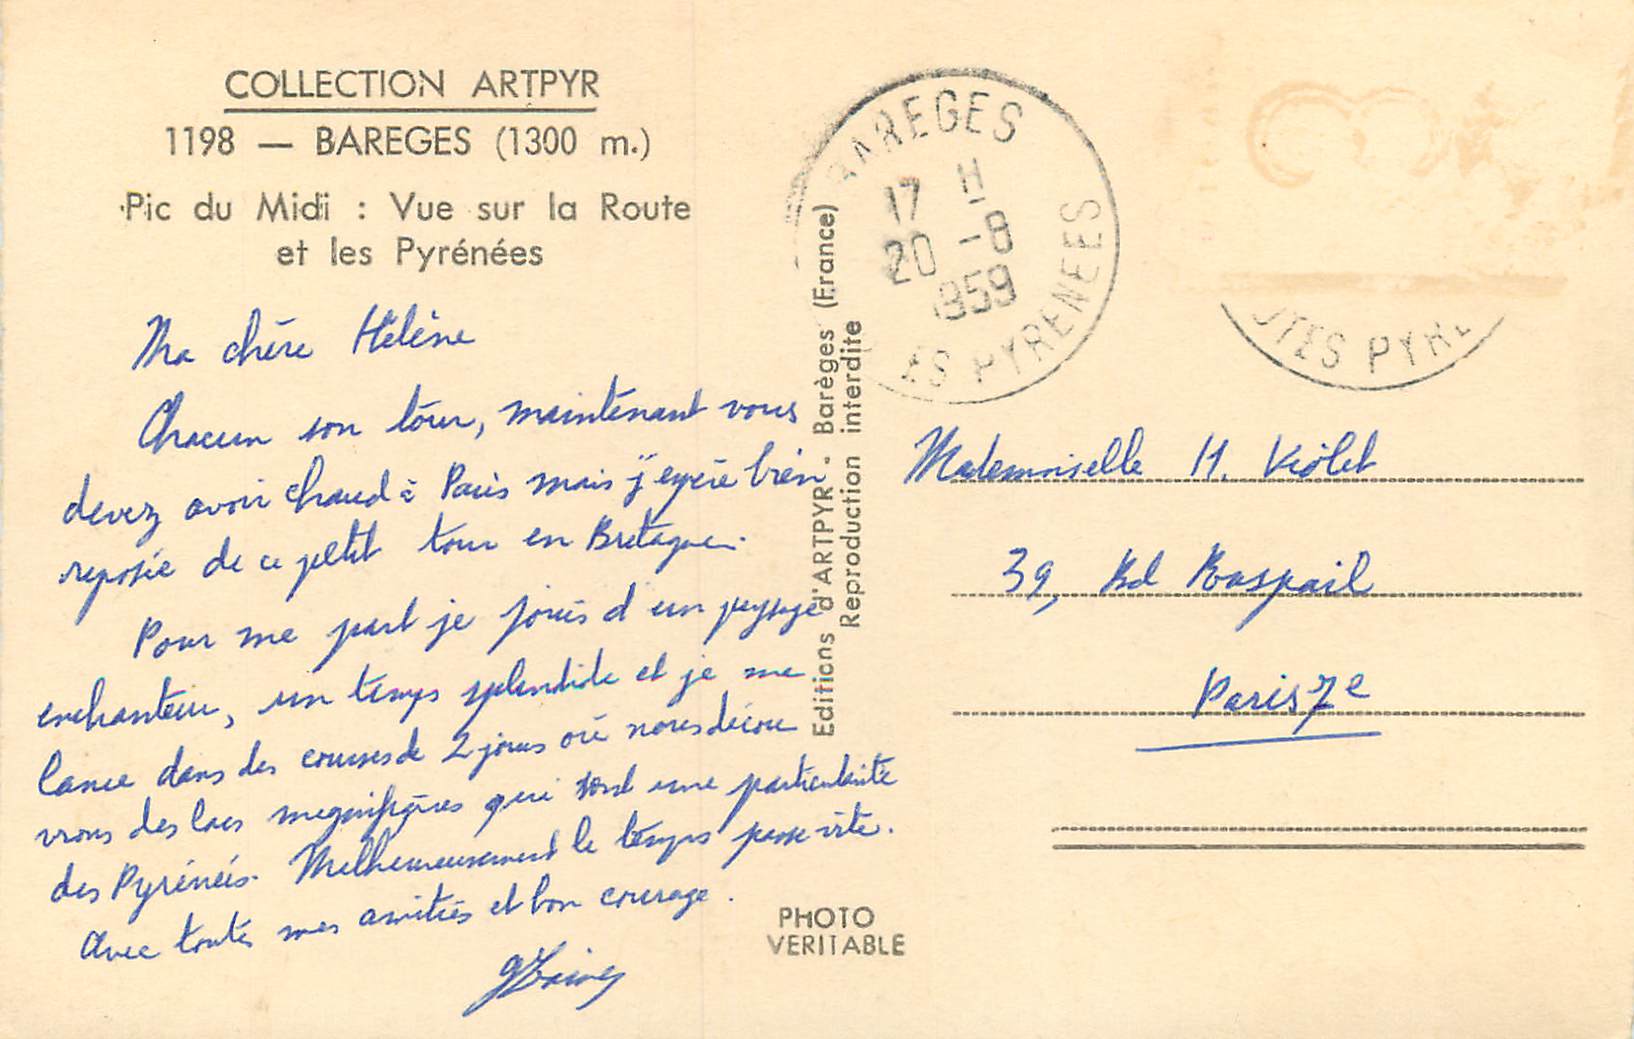 COLLECTION ARTPYR
1198 — BAREGES (1300 m.)
Pic du Midi : Vue sur la Route
et les Pyrénées
Ma chère Hélène
Chacun son tour, maintenant vous
devez avoir chaud à Paris mais j'espère bien
reposée de ce petit tour en Bretagne.
Pour me part je jouis d'un paysage
enchanteur, un temps splendide et je me
lance dans des courses de 2 jours où nous décou
vrons des lacs magnifiques qui sont une particularité
des Pyrénées. Malheureusement le temps passe vite.
Avec toutes mes amitiés et bon courage.
Editions d'ARTPYR - Barèges (France)
Reproduction interdite
PHOTO
VERITABLE
BAREGES
17 H
20 -8
1959
ES PYRENEES
UTES PYRE
Mademoiselle H. Violet
39, Bd Raspail
Paris 7e